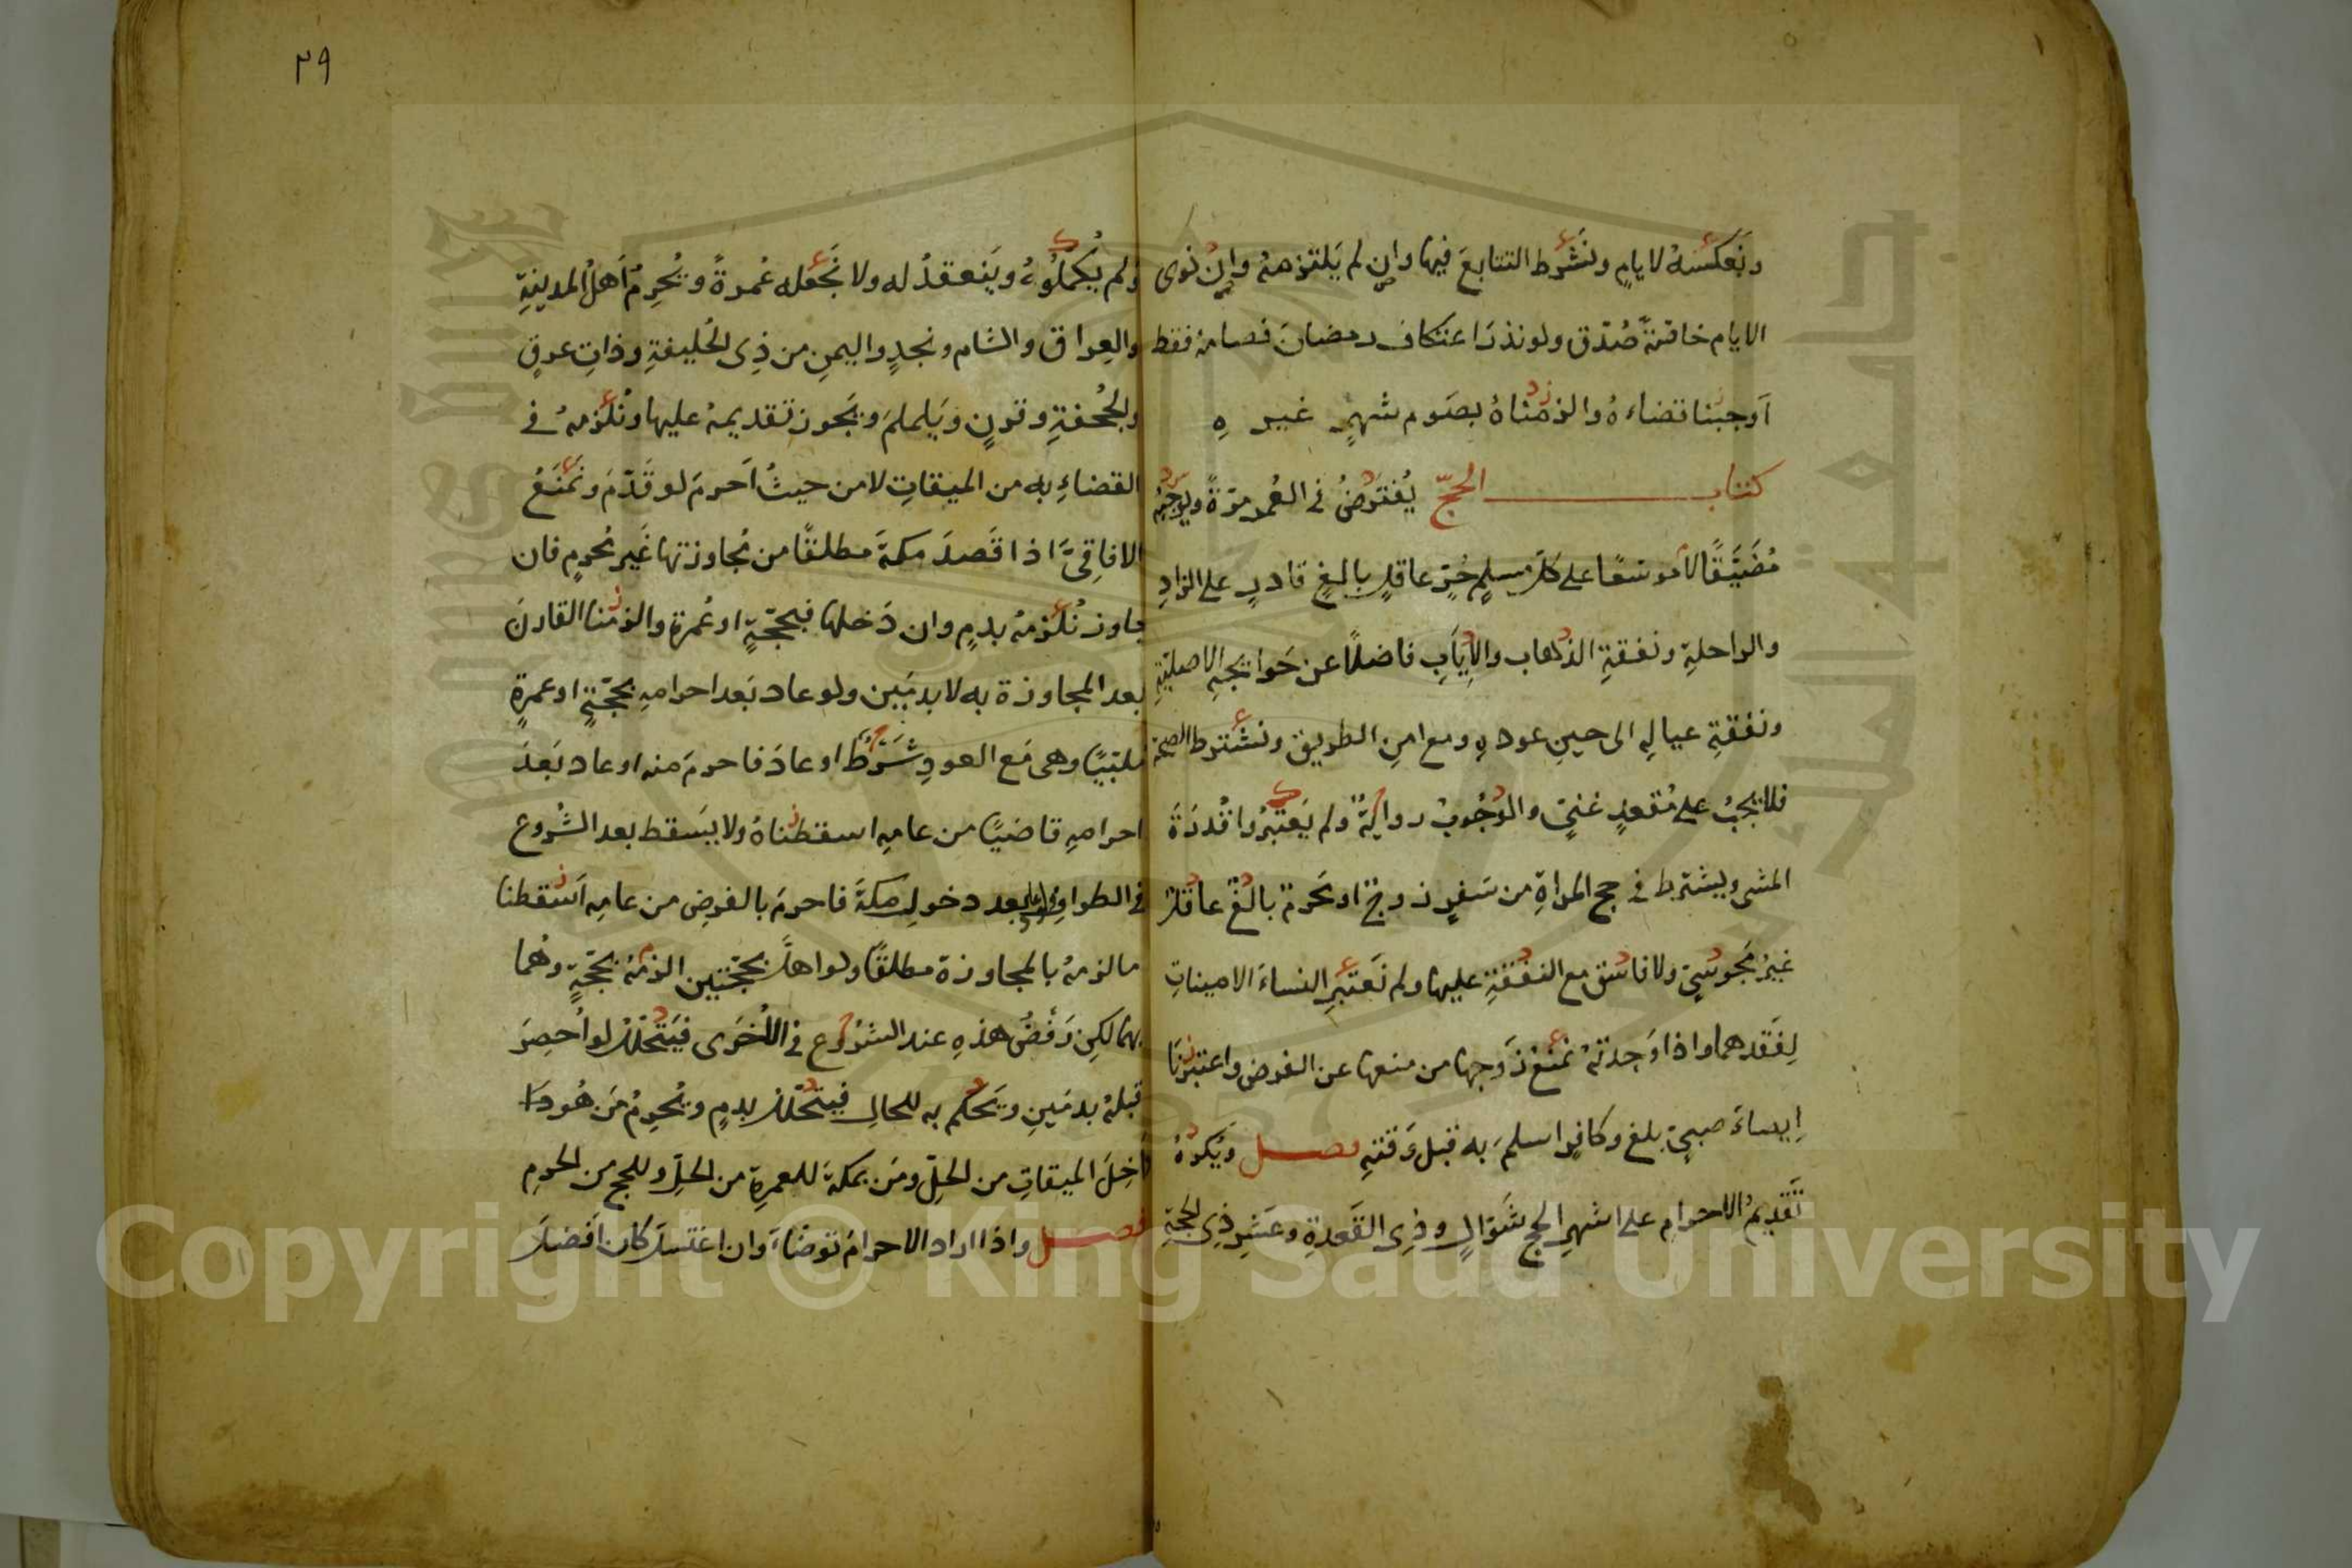 ونعكسه لايام ونشرط التتابع فيها وان لم يلتزمه وان نوى
الايام خاصة صدق ولو نذر اعتكاف رمضان فصامه فقط
اوجبنا قضاءه والزمناه بصوم شهر غيره
كتاب الحج يفترض في العمر مرة ويوجبه
مضيقا لا موسعا على كل مسلم حر عاقل بالغ قادر على الزاد
والراحلة ونفقة الذهاب والاياب فاضلا عن حوائجه الاصلية
ونفقة عياله الى حين عوده ومع امن الطريق ونشترط الصحة
فلا يجب على مقعد غني والوجوب رواية ولم يعتبروا قدرة
المشي ويشترط في حج المراة من سفر زوج او محرم بالغ عاقل
غير مجوسي ولا فاسق مع النفقة عليها ولم نعتبر النساء الامينات
لفقدهما واذا وجدته نمنع زوجها من منعها عن الفرض واعتبرنا
ايصاء صبي بلغ وكافر اسلم به قبل وقته فصل ويكره
تقديم الاحرام على اشهر الحج شوال وذي القعدة وعشر ذي الحجة
٣٩
ولم يكملوه وينعقد له ولا نجعله عمرة ويحرم اهل المدينة
والعراق والشام ونجد واليمن من ذي الحليفة وذات عرق
والجحفة وقرن ويلملم ويجوز تقديمه عليها ونلزمه في
القضاء به من الميقات لا من حيث احرم لو قدم ونمنع
الافاقي اذا قصد مكة مطلقا من مجاوزتها غير محرم فان
جاوز نلزمه بدم وان دخلها فبحجة او عمرة والزمنا القارن
بعد المجاوزة به لا بدمين ولو عاد بعد احرامه بحجة او عمرة
ملبيا وهي مع العود شرط او عاد فاحرم منه او عاد بعد
احرامه قاضيا من عامه اسقطناه ولا يسقط بعد الشروع
في الطواف بعد دخول مكة فاحرم بالفرض من عامه اسقطنا
ما لزمه بالمجاوزة مطلقا ولو اهل بحجتين الزمه بحجة وهما
بهما لكن رفض هذه عند الشروع في الاخرى فيتحلل لو احصر
قبله بدمين ويحكم به للحال فيتحلل بدم ويحرم من هو دا
داخل الميقات من الحل ومن بمكة للعمرة من الحل وللحج من الحرم
فصل واذا اراد الاحرام توضاء وان اغتسل كان افضل
Copyright © King Saud University